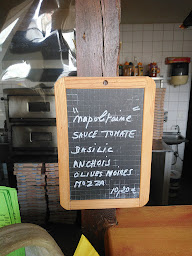 "Napolitaine"
SAUCE TOMATE
BASILIC
ANCHOIS
OLIVES NOIRES
MOZZA
10,20 €